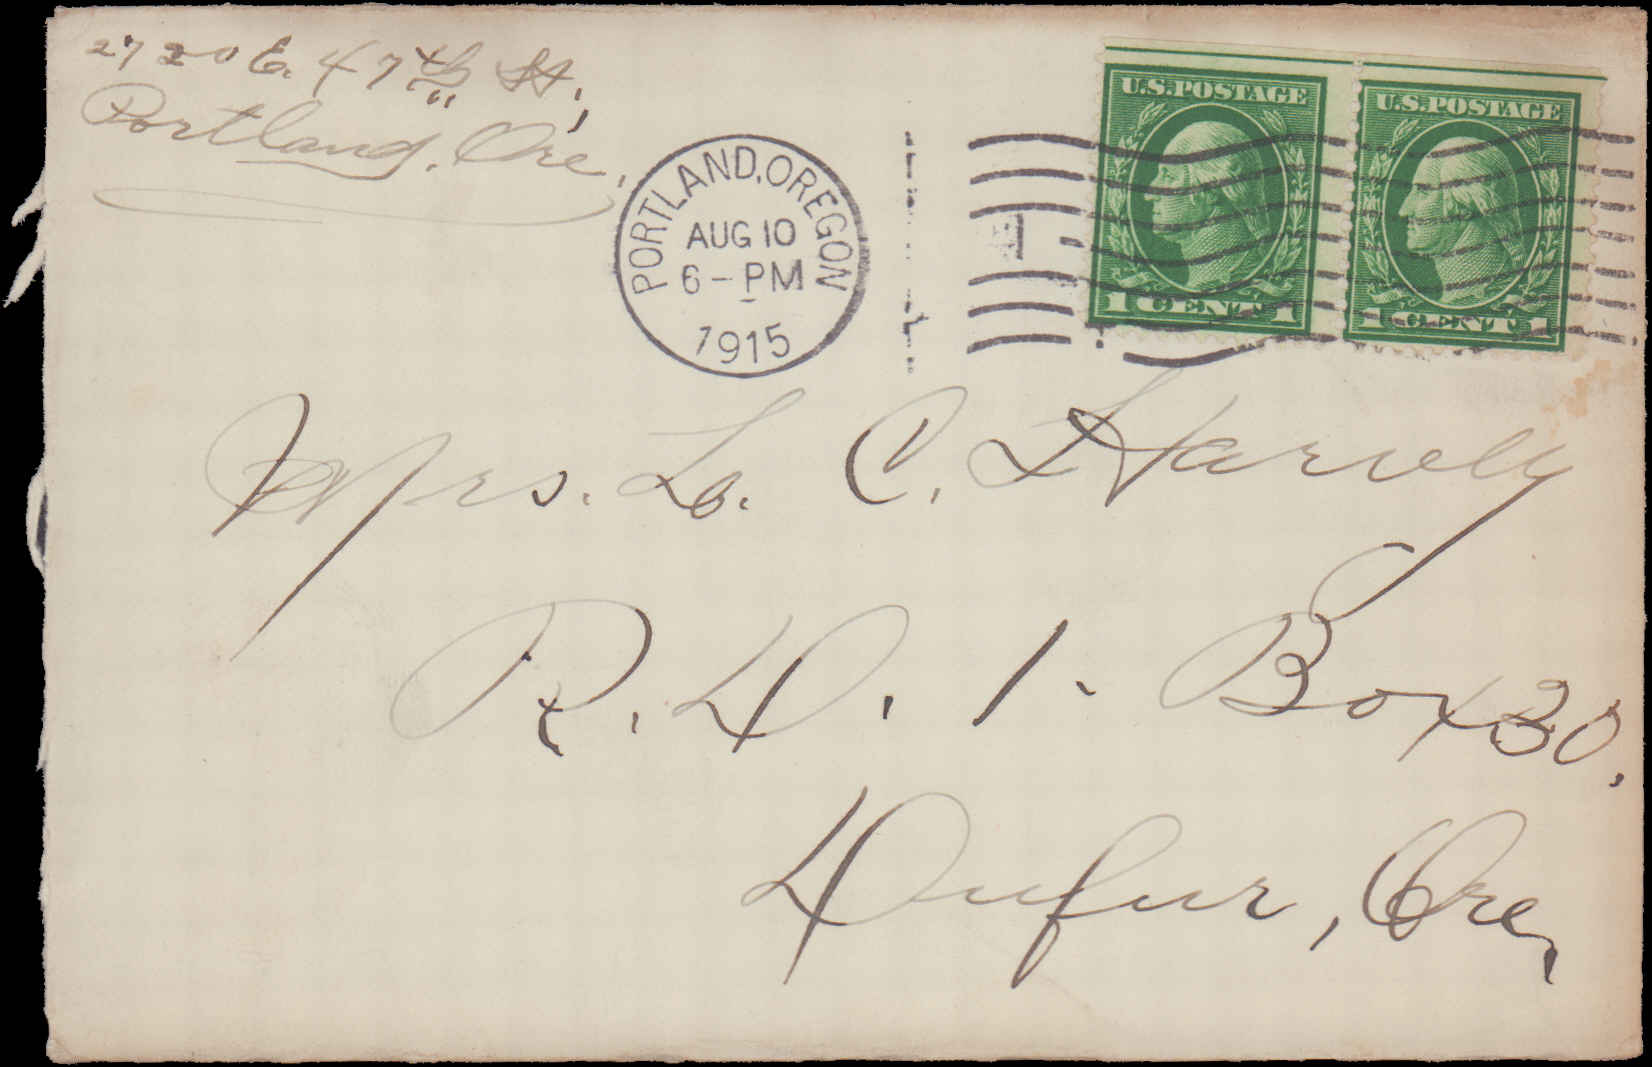 2720 E. 47th St,
Portland, Ore,
PORTLAND, OREGON
AUG 10
6 - PM
1915
U.S. POSTAGE
1 CENT 1
U.S. POSTAGE
1 CENT 1
Mrs. L. C. Harvey
R. D. 1. Box 30,
Dufur, Ore,